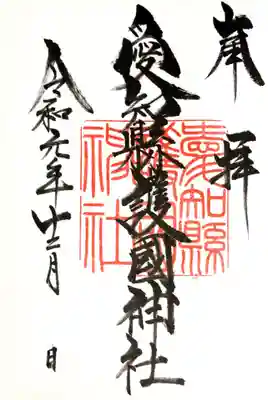 奉拝
愛知縣護國神社
令和元年十二月 日
愛知縣
護國
神社